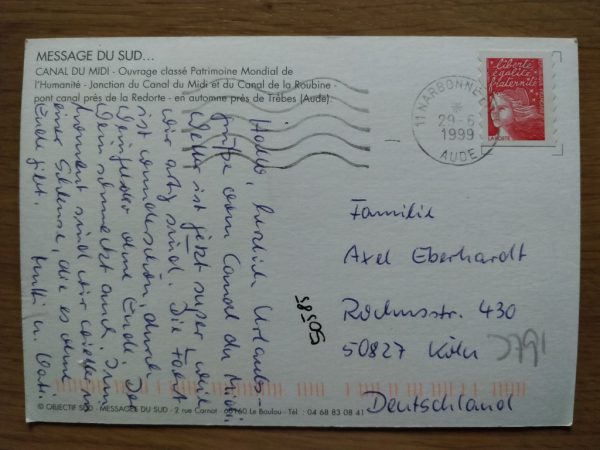 MESSAGE DU SUD...
CANAL DU MIDI - Ouvrage classé Patrimoine Mondial de
l'Humanité - Jonction du Canal du Midi et du Canal de la Roubine -
pont canal près de la Redorte - en automne près de Trèbes (Aude).
Hallo, herzliche Urlaubs-
grüße vom Canal du Midi.
Wetter ist jetzt super, weil
wir artig sind. Die Fahrt
ist wunderschön, durch
Weinfelder ohne Ende. Der
Wein schmeckt auch. Im
Moment sind wir wieder in
einer Schleuse, die es ohne
Ende gibt.
Mutti u. Vati.
liberté
égalité
fraternité
LA POSTE
11 NARBONNE
29-6
1999
AUDE
Familie
Axel Eberhardt
Rochusstr. 430
50827 Köln
Deutschland
3791
© OBJECTIF SUD - MESSAGE DU SUD - 2 rue Carnot - 66160 Le Boulou - Tél : 04 68 83 08 41